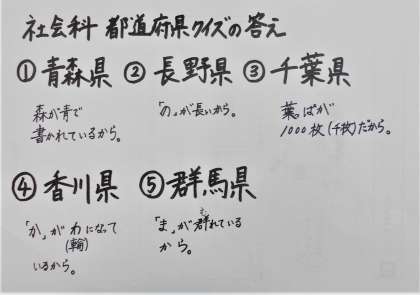 社会科 都道府県クイズの答え
①青森県 ②長野県 ③千葉県
森が青で
書かれているから。
「の」が長いから。
葉っぱが
1000枚(千枚)だから。
④香川県 ⑤群馬県
「か」がわになって
(輪)
いるから。
「ま」が群れている
から。